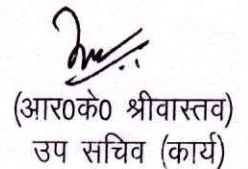 (आर0के0 श्रीवास्तव)
उप सचिव (कार्य)